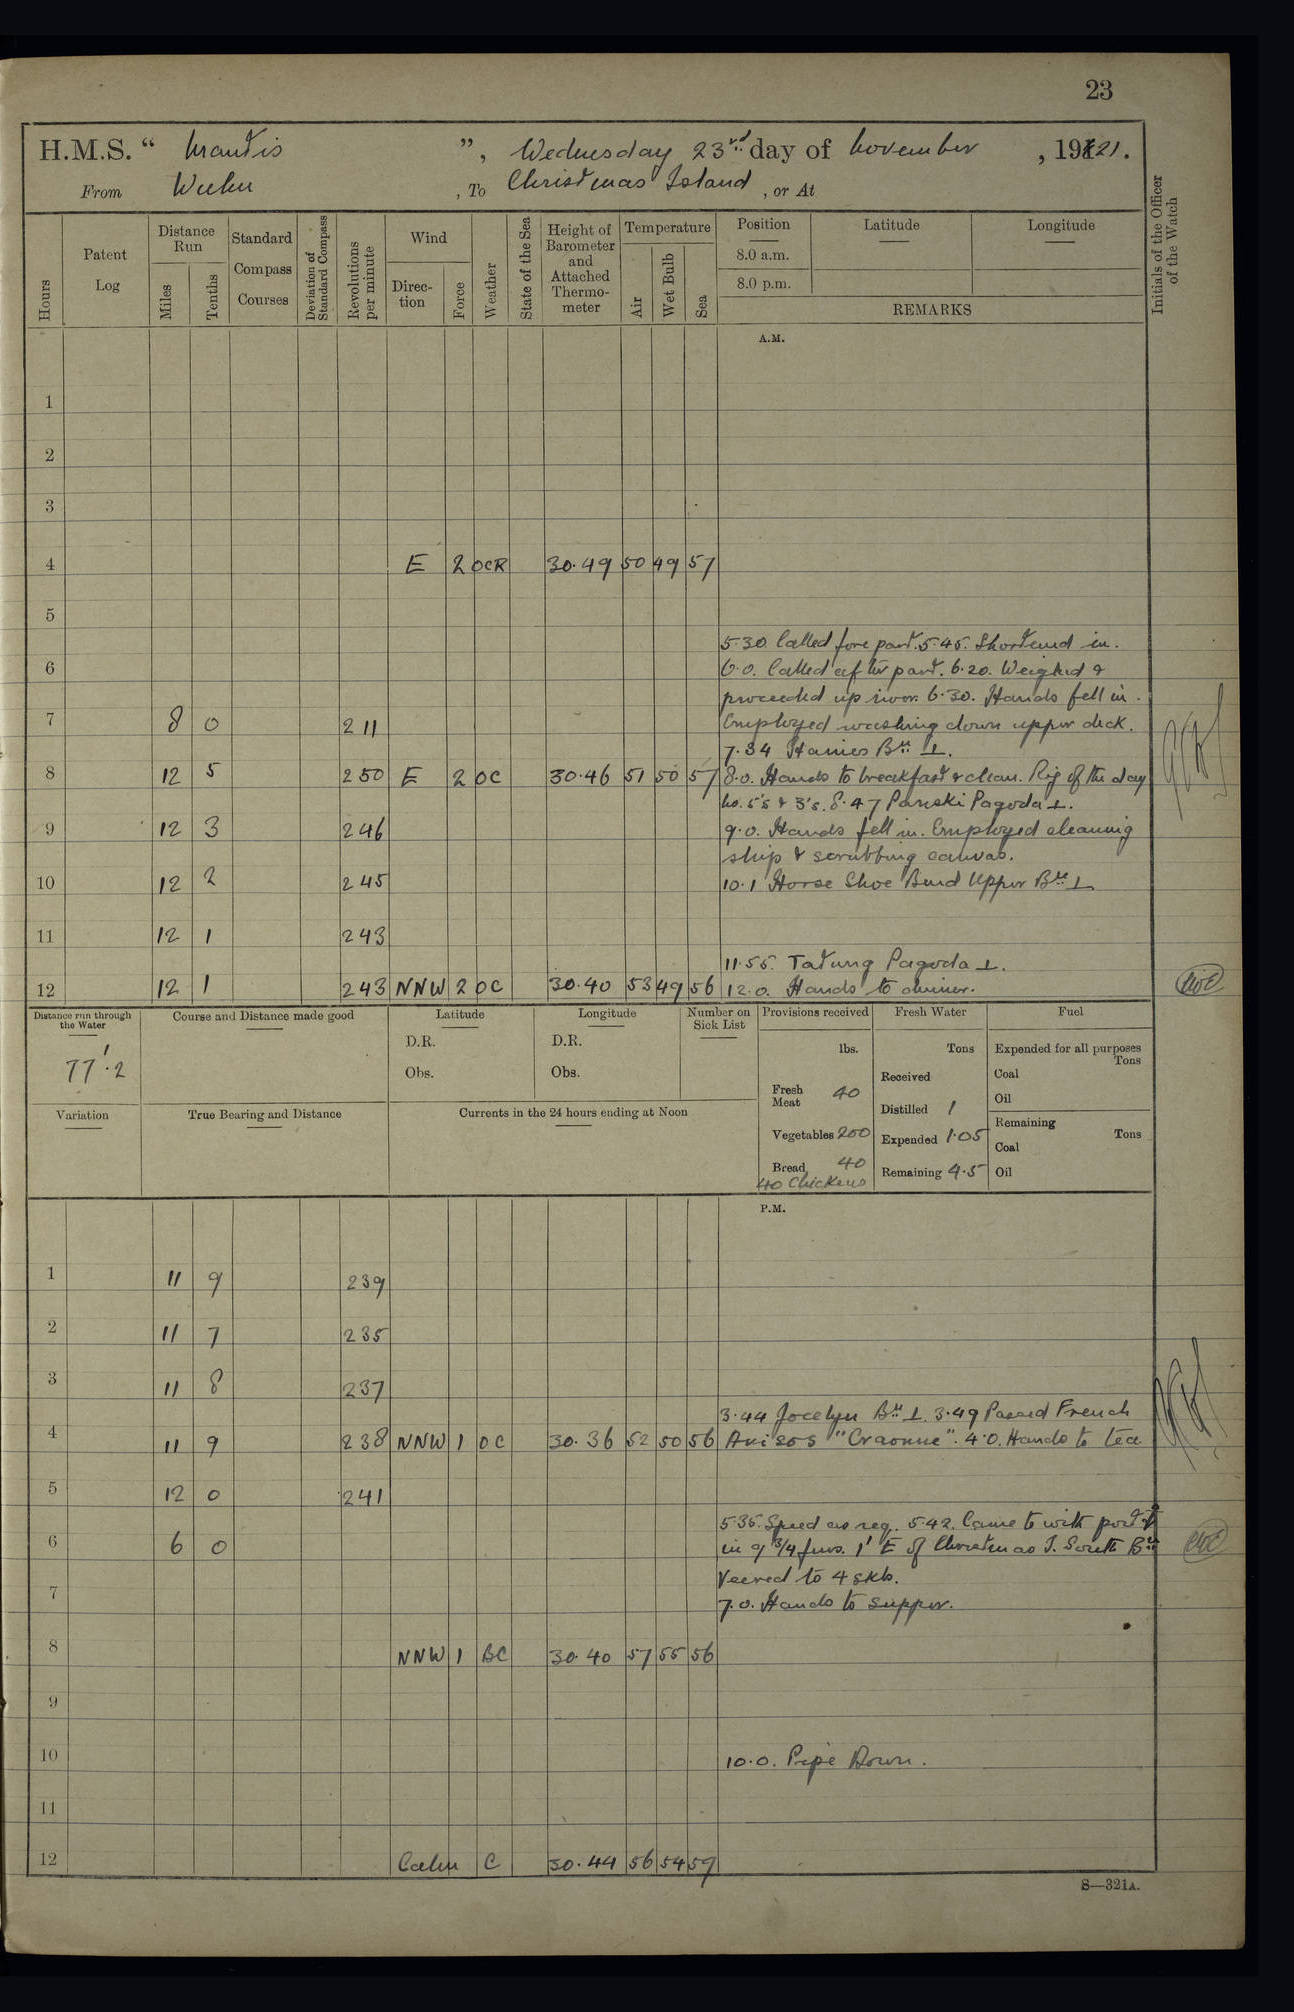 23
H.M.S. “ Mantis ”, Wednesday 23rd day of November , 1921.
From Wuhu , To Christmas Island , or At
Hours
Patent Log
Distance Run
Miles
Tenths
Standard Compass Courses
Deviation of Standard Compass
Revolutions per minute
Wind
Direction
Force
Weather
State of the Sea
Height of Barometer and Attached Thermometer
Temperature
Air
Wet Bulb
Sea
Position
8.0 a.m.
8.0 p.m.
Latitude
Longitude
REMARKS
Initials of the Officer of the Watch
A.M.
1
2
3
4 E 2 OCR 30.49 50 49 57
5
5.30. Called fore part. 5.45. Shortened in.
6 6.0. Called after part. 6.20. Weighed &
proceeded up river. 6.30. Hands fell in.
7 8 0 211 Employed washing down upper deck.
7.34 Haines Bn ⊥.
8 12 5 250 E 2 OC 30.46 51 50 57 8.0. Hands to breakfast & clean. Rig of the day
No. 5's & 3's. 8.47 Panski Pagoda ⊥.
9 12 3 246 9.0. Hands fell in. Employed cleaning
ship & scrubbing canvas.
10 12 2 245 10.1 Horse Shoe Bend Upper Bn ⊥
11 12 1 243
11.55. Tatung Pagoda ⊥.
12 12 1 243 NNW 2 OC 30.40 53 49 56 12.0. Hands to dinner.
Distance run through the Water
77'.2
Course and Distance made good
Latitude
D.R.
Obs.
Longitude
D.R.
Obs.
Number on Sick List
Variation
True Bearing and Distance
Currents in the 24 hours ending at Noon
Provisions received
lbs.
Fresh Meat 40
Vegetables 200
Bread 40
40 Chickens
Fresh Water
Tons
Received
Distilled 1
Expended 1.05
Remaining 4.5
Fuel
Expended for all purposes
Tons
Coal
Oil
Remaining
Tons
Coal
Oil
P.M.
1 11 9 239
2 11 7 235
3 11 8 237
3.44 Jocelyn Bn ⊥. 3.49 Passed French
4 11 9 238 NNW 1 OC 30.36 52 50 56 Avisos "Craonne". 4.0. Hands to tea
5 12 0 241
5.35. Speed as req. 5.42. Came to with port ⚓
6 6 0 in 9 3/4 fms. 1' E of Christmas I. South Bn
Veered to 4 skls.
7 7.0. Hands to supper.
8 NNW 1 BC 30.40 57 55 56
9
10 10.0. Pipe Down.
11
12 Calm C 30.44 56 54 59
S—321A.